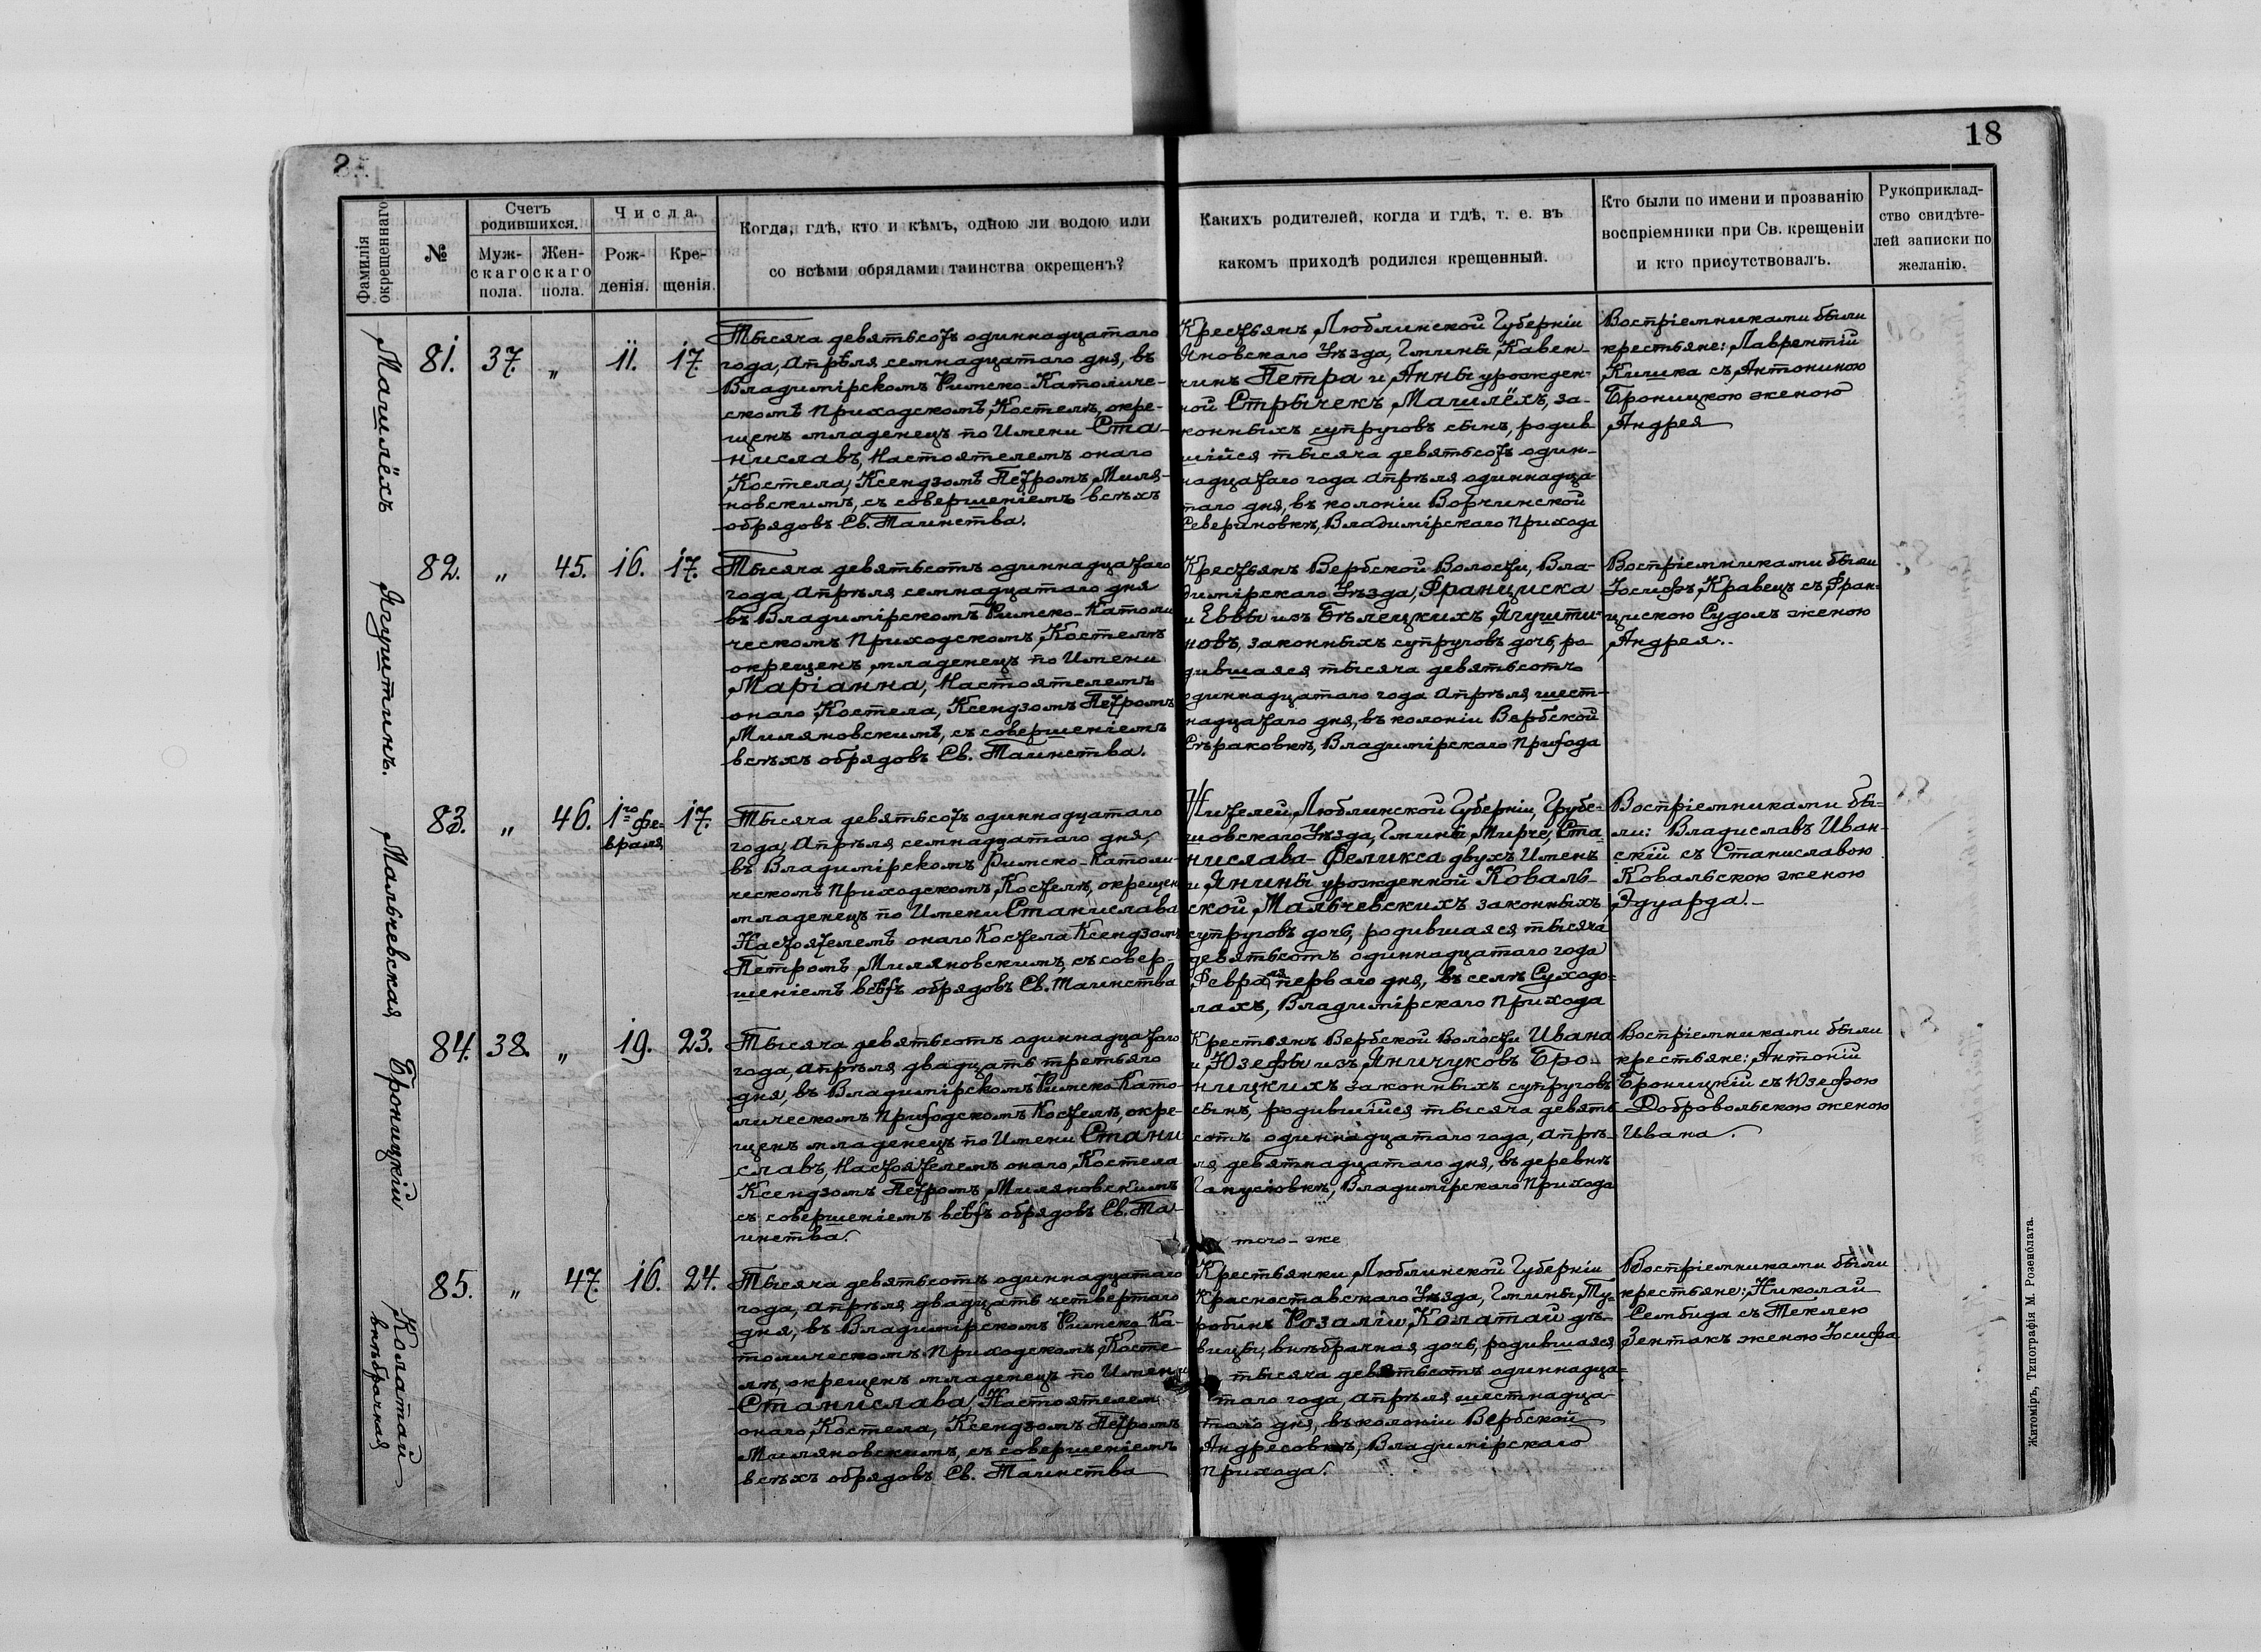 18
Фамилія окрещеннаго
№
Счетъ родившихся.
Муж-скаго пола.
Жен-скаго пола.
Числа.
Рож-денія.
Кре-щенія.
Когда, гдѣ, кто и кѣмъ, одною ли водою или
со всѣми обрядами таинства окрещенъ?
Какихъ родителей, когда и гдѣ, т. е. въ
какомъ приходѣ родился крещенный.
Кто были по имени и прозванію
воспріемники при Св. крещеніи
и кто присутствовалъ.
Рукоприклад-
ство свидѣте-
лей записки по
желанію.
Машлёхъ
81. 37. „ 11. 17.
Тысяча девятьсотъ одиннадцатаго
года, Апрѣля семнадцатаго дня, въ
Владимірскомъ Римско-Католиче-
скомъ Приходскомъ Костелѣ, окре-
щенъ младенецъ по Имени Ста-
ниславъ, Настоятелемъ онаго
Костела, Ксендзомъ Петромъ Миля-
новскимъ, съ совершеніемъ всѣхъ
обрядовъ Св. Таинства.
Крестьянъ Люблинской Губерніи
Яновскаго Уѣзда, Гмины Кавен-
чинъ Петра и Анны урожден-
ной Стрычекъ Машлёхъ, за-
конныхъ супруговъ сынъ, родив
шійся тысяча девятьсотъ один-
надцатаго года Апрѣля одиннадца
таго дня, въ колоніи Ворчинской
Севериновкѣ, Владимірскаго Прихода
Востріемниками были
крестьяне: Лаврентій
Кишка съ Антониною
Броницкою женою
Андрея
Ягуштинъ.
82. „ 45. 16. 17.
Тысяча девятьсотъ одиннадцатаго
года, Апрѣля семнадцатаго дня
въ Владимірскомъ Римско-Католи
ческомъ Приходскомъ Костелѣ
окрещенъ младенецъ по Имени
Маріанна, Настоятелемъ
онаго Костела, Ксендзомъ Петромъ
Миляновскимъ, съ совершеніемъ
всѣхъ обрядовъ Св. Таинства.
Крестьянъ Вербской Волости, Вла-
димірскаго Уѣзда, Франциска
и Еввы изъ Бѣлецкихъ Ягушти-
новъ, законныхъ супруговъ дочь, ро
дившаяся тысяча девятьсотъ
одиннадцатаго года Апрѣля шест-
надцатаго дня, въ колоніи Вербской
Сѣраковкѣ, Владимірскаго Прихода
Востріемниками были
Іосифъ Кравецъ съ Фран-
цискою Судолъ женою
Андрея.
Мальчевская
83. „ 46. 1го фе-враля 17.
Тысяча девятьсотъ одиннадцатаго
года, Апрѣля семнадцатаго дня,
въ Владимірскомъ Римско-Католи-
ческомъ Приходскомъ Костелѣ, окрещен
младенецъ по Имени Станислава
Настоятелемъ онаго Костела Ксендзомъ
Петромъ Миляновскимъ, съ совер-
шеніемъ всѣхъ обрядовъ Св. Таинства
Жителей Люблинской Губерніи, Грубе-
шовскаго Уѣзда, Гмины Мирче, Ста-
нислава-Феликса двухъ Именъ
и Янины урожденной Коваль-
ской Мальчевскихъ законныхъ
супруговъ дочь, родившаяся тысяча
девятьсотъ одиннадцатаго года
Февраля перваго дня, въ селѣ Суходо-
лахъ, Владимірскаго Прихода
Востріемниками бы-
ли: Владиславъ Иван-
скій съ Станиславою
Ковальскою женою
Эдуарда.
Броницкій
84. 38. „ 19. 23.
Тысяча девятьсотъ одиннадцатаго
года, Апрѣля двадцать третьяго
дня, въ Владимірскомъ Римско-Като-
лическомъ Приходскомъ Костелѣ, окре-
щенъ младенецъ по Имени Стани
славъ, Настоятелемъ онаго Костела
Ксендзомъ Петромъ Миляновскимъ
съ совершеніемъ всѣхъ обрядовъ Св. Та-
инства.
Крестьянъ Вербской Волости Ивана
и Юзефы изъ Яничуковъ Бро-
ницкихъ законныхъ супруговъ
сынъ, родившійся тысяча девять
сотъ одиннадцатаго года, Апрѣ-
ля девятнадцатаго дня, въ деревнѣ
Ганусіовкѣ, Владимірскаго Прихода
Востріемниками были
крестьяне: Антоній
Броницкій съ Юзефою
Добровольскою женою
Ивана.
того-же
Колатай
внѣбрачная
85. „ 47. 16. 24.
Тысяча девятьсотъ одиннадцатаго
года, Апрѣля двадцать четвертаго
дня, въ Владимірскомъ Римско-Ка-
толическомъ Приходскомъ Косте-
лѣ, окрещенъ младенецъ по Имени
Станислава, Настоятелем
онаго Костела, Ксендзомъ Петромъ
Миляновскимъ, съ совершеніемъ
всѣхъ обрядовъ Св. Таинства
Крестьянки Люблинской Губерніи
Красноставскаго Уѣзда, Гмины Ту-
робинъ Розаліи Колатай дѣ-
вицы, внѣбрачная дочь, родившаяся
тысяча девятьсотъ одиннадца-
таго года, Апрѣля шестнадца-
таго дня, въ колоніи Вербской
Андресовкѣ, Владимірскаго
Прихода.
Востріемниками были
крестьяне: Николай
Сембида съ Теклею
Зентакъ женою Іосифа
Житоміръ, Типографія М. Розенблата.